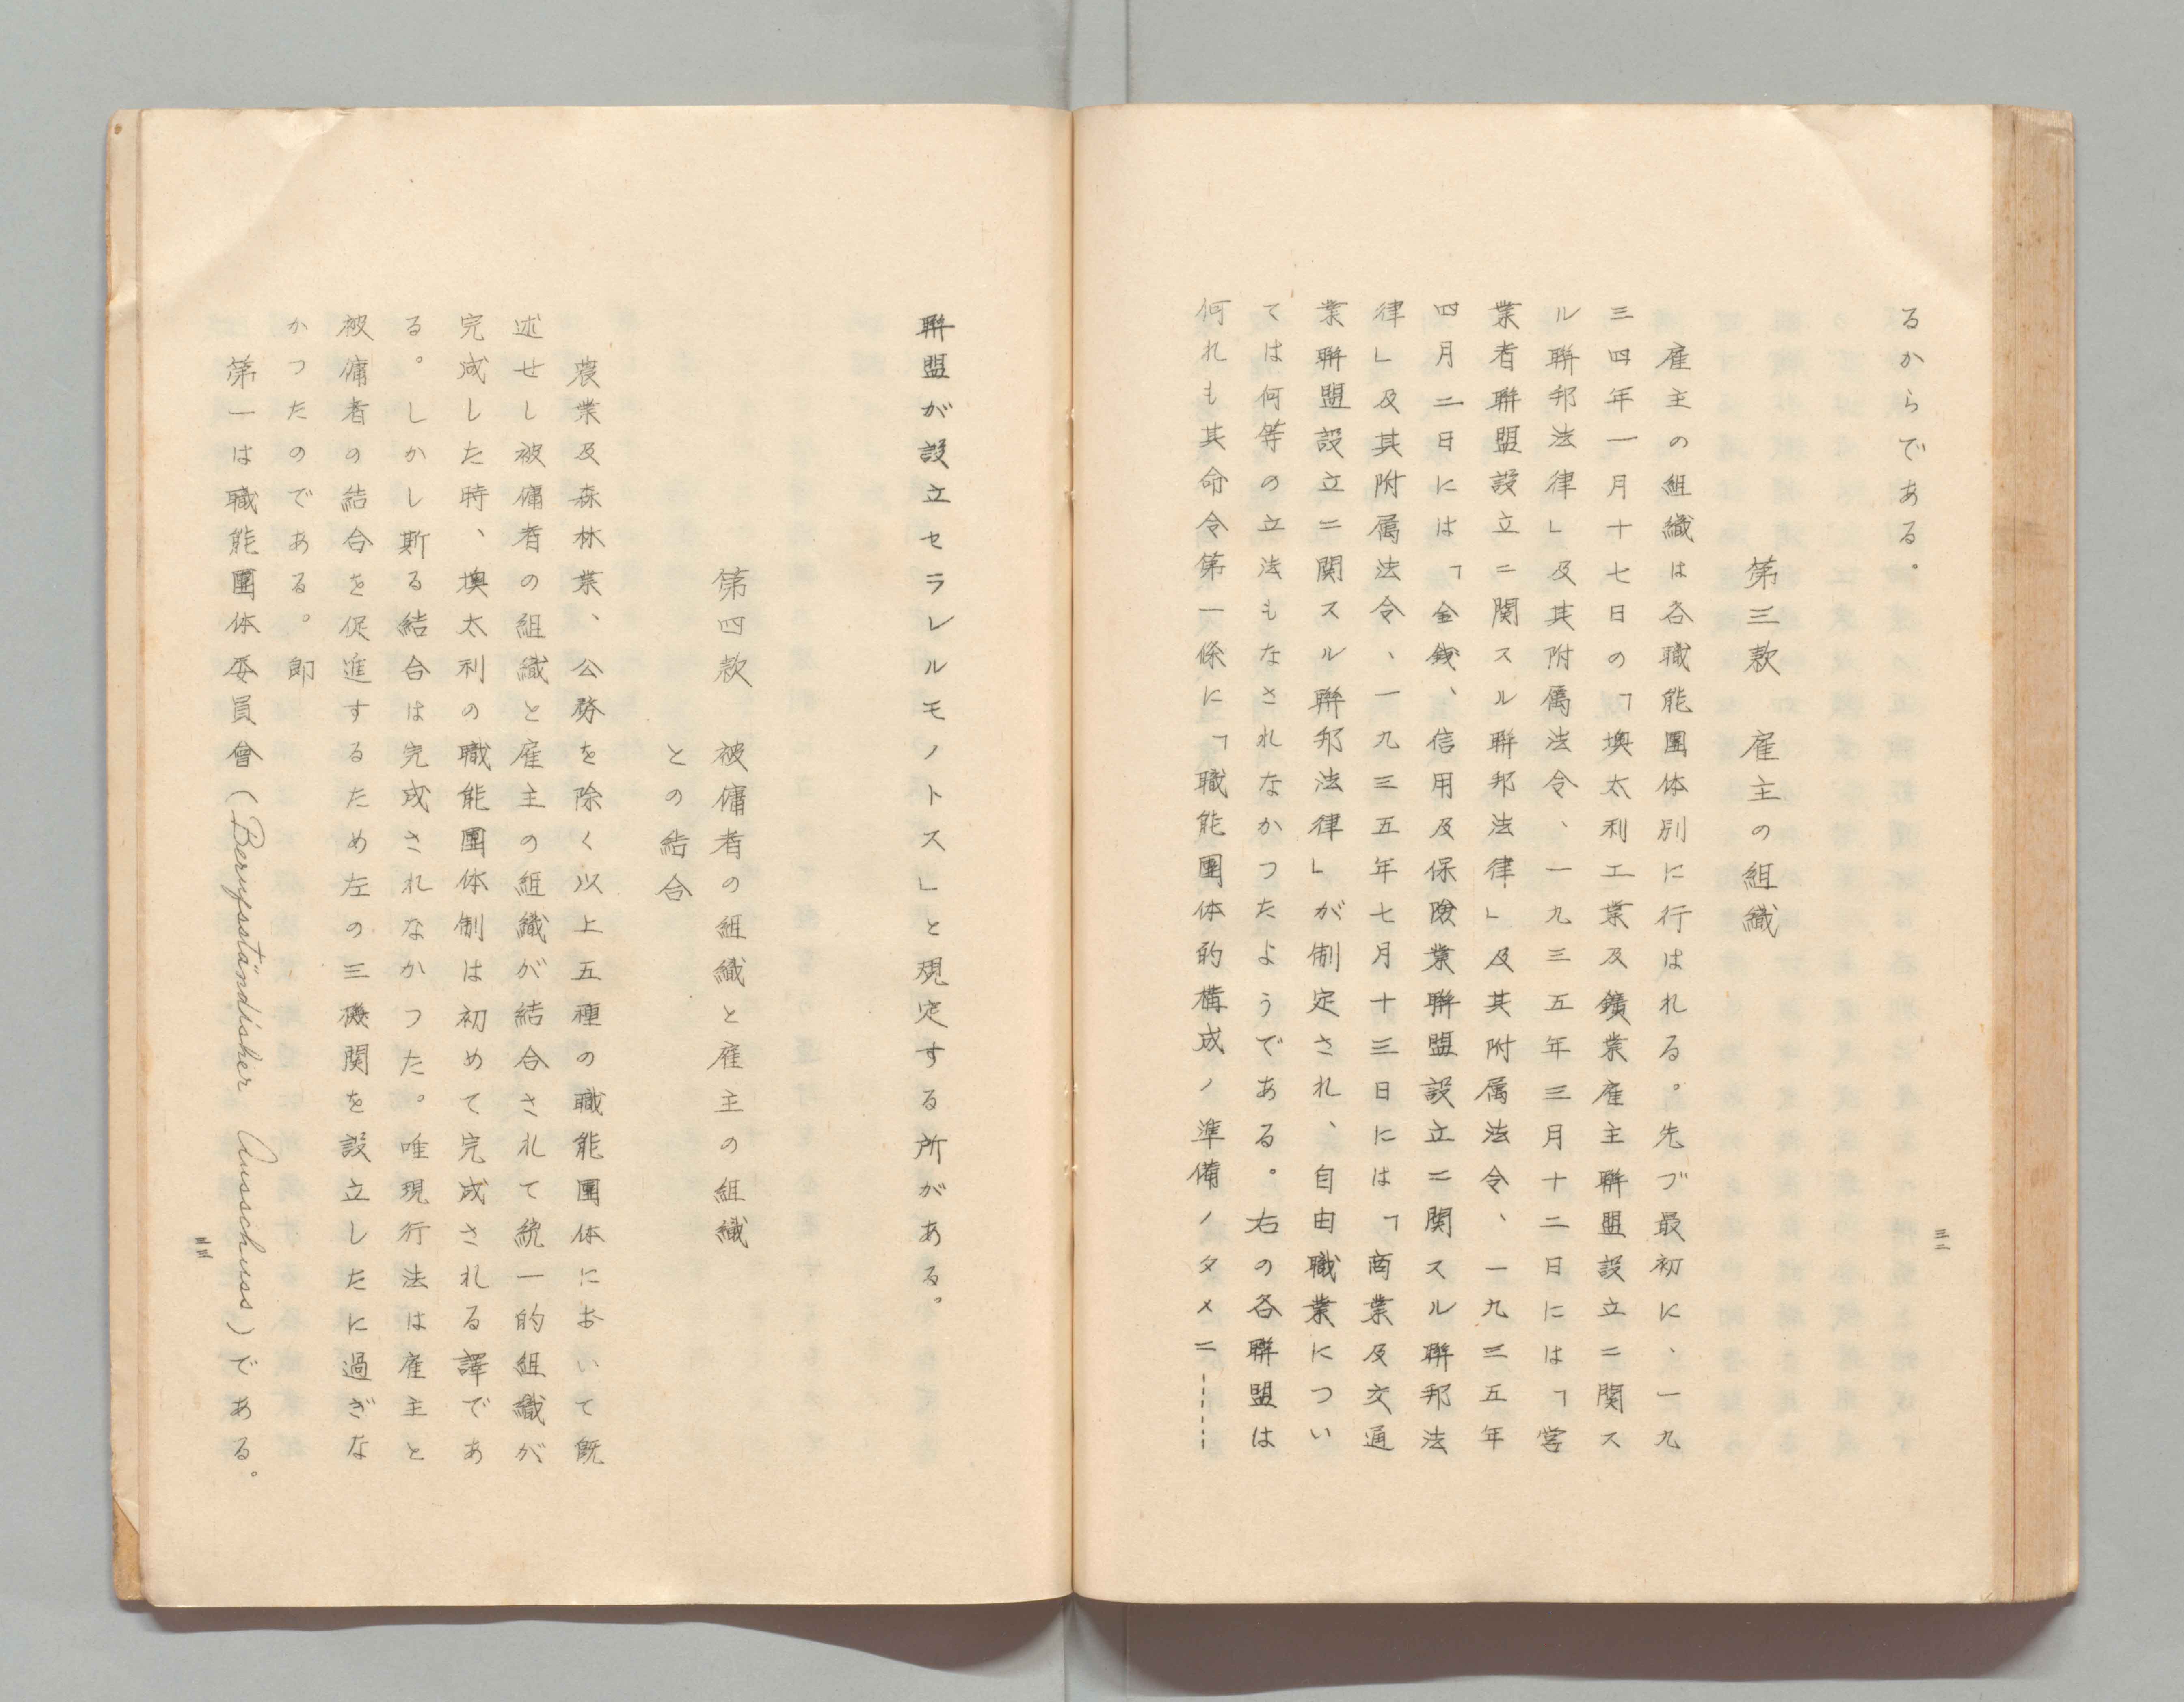 るからである。
第三款　雇主の組織
雇主の組織は各職能團体別に行はれる。先づ最初に、一九
三四年一月十七日の「墺太利工業及鑛業雇主聯盟設立ニ関ス
ル聯邦法律」及其附属法令、一九三五年三月十二日には「営
業者聯盟設立ニ関スル聯邦法律」及其附属法令、一九三五年
四月二日には「金銭、信用及保険業聯盟設立ニ関スル聯邦法
律」及其附属法令、一九三五年七月十三日には「商業及交通
業聯盟設立ニ関スル聯邦法律」が制定され、自由職業につい
ては何等の立法もなされなかつたようである。右の各聯盟は
何れも其命令第一條に「職能團体的構成ノ準備ノタメニ-----
三二
聯盟が設立セラレルモノトス」と規定する所がある。
第四款　被傭者の組織と雇主の組織
との結合
農業及森林業、公務を除く以上五種の職能團体において既
述せし被傭者の組織と雇主の組織が結合されて統一的組織が
完成した時、墺太利の職能團体制は初めて完成される譯であ
る。しかし斯る結合は完成されなかつた。唯現行法は雇主と
被傭者の結合を促進するため左の三機関を設立したに過ぎな
かつたのである。即
第一は職能團体委員會（Berufsständisher Ausschuss）である。
三三